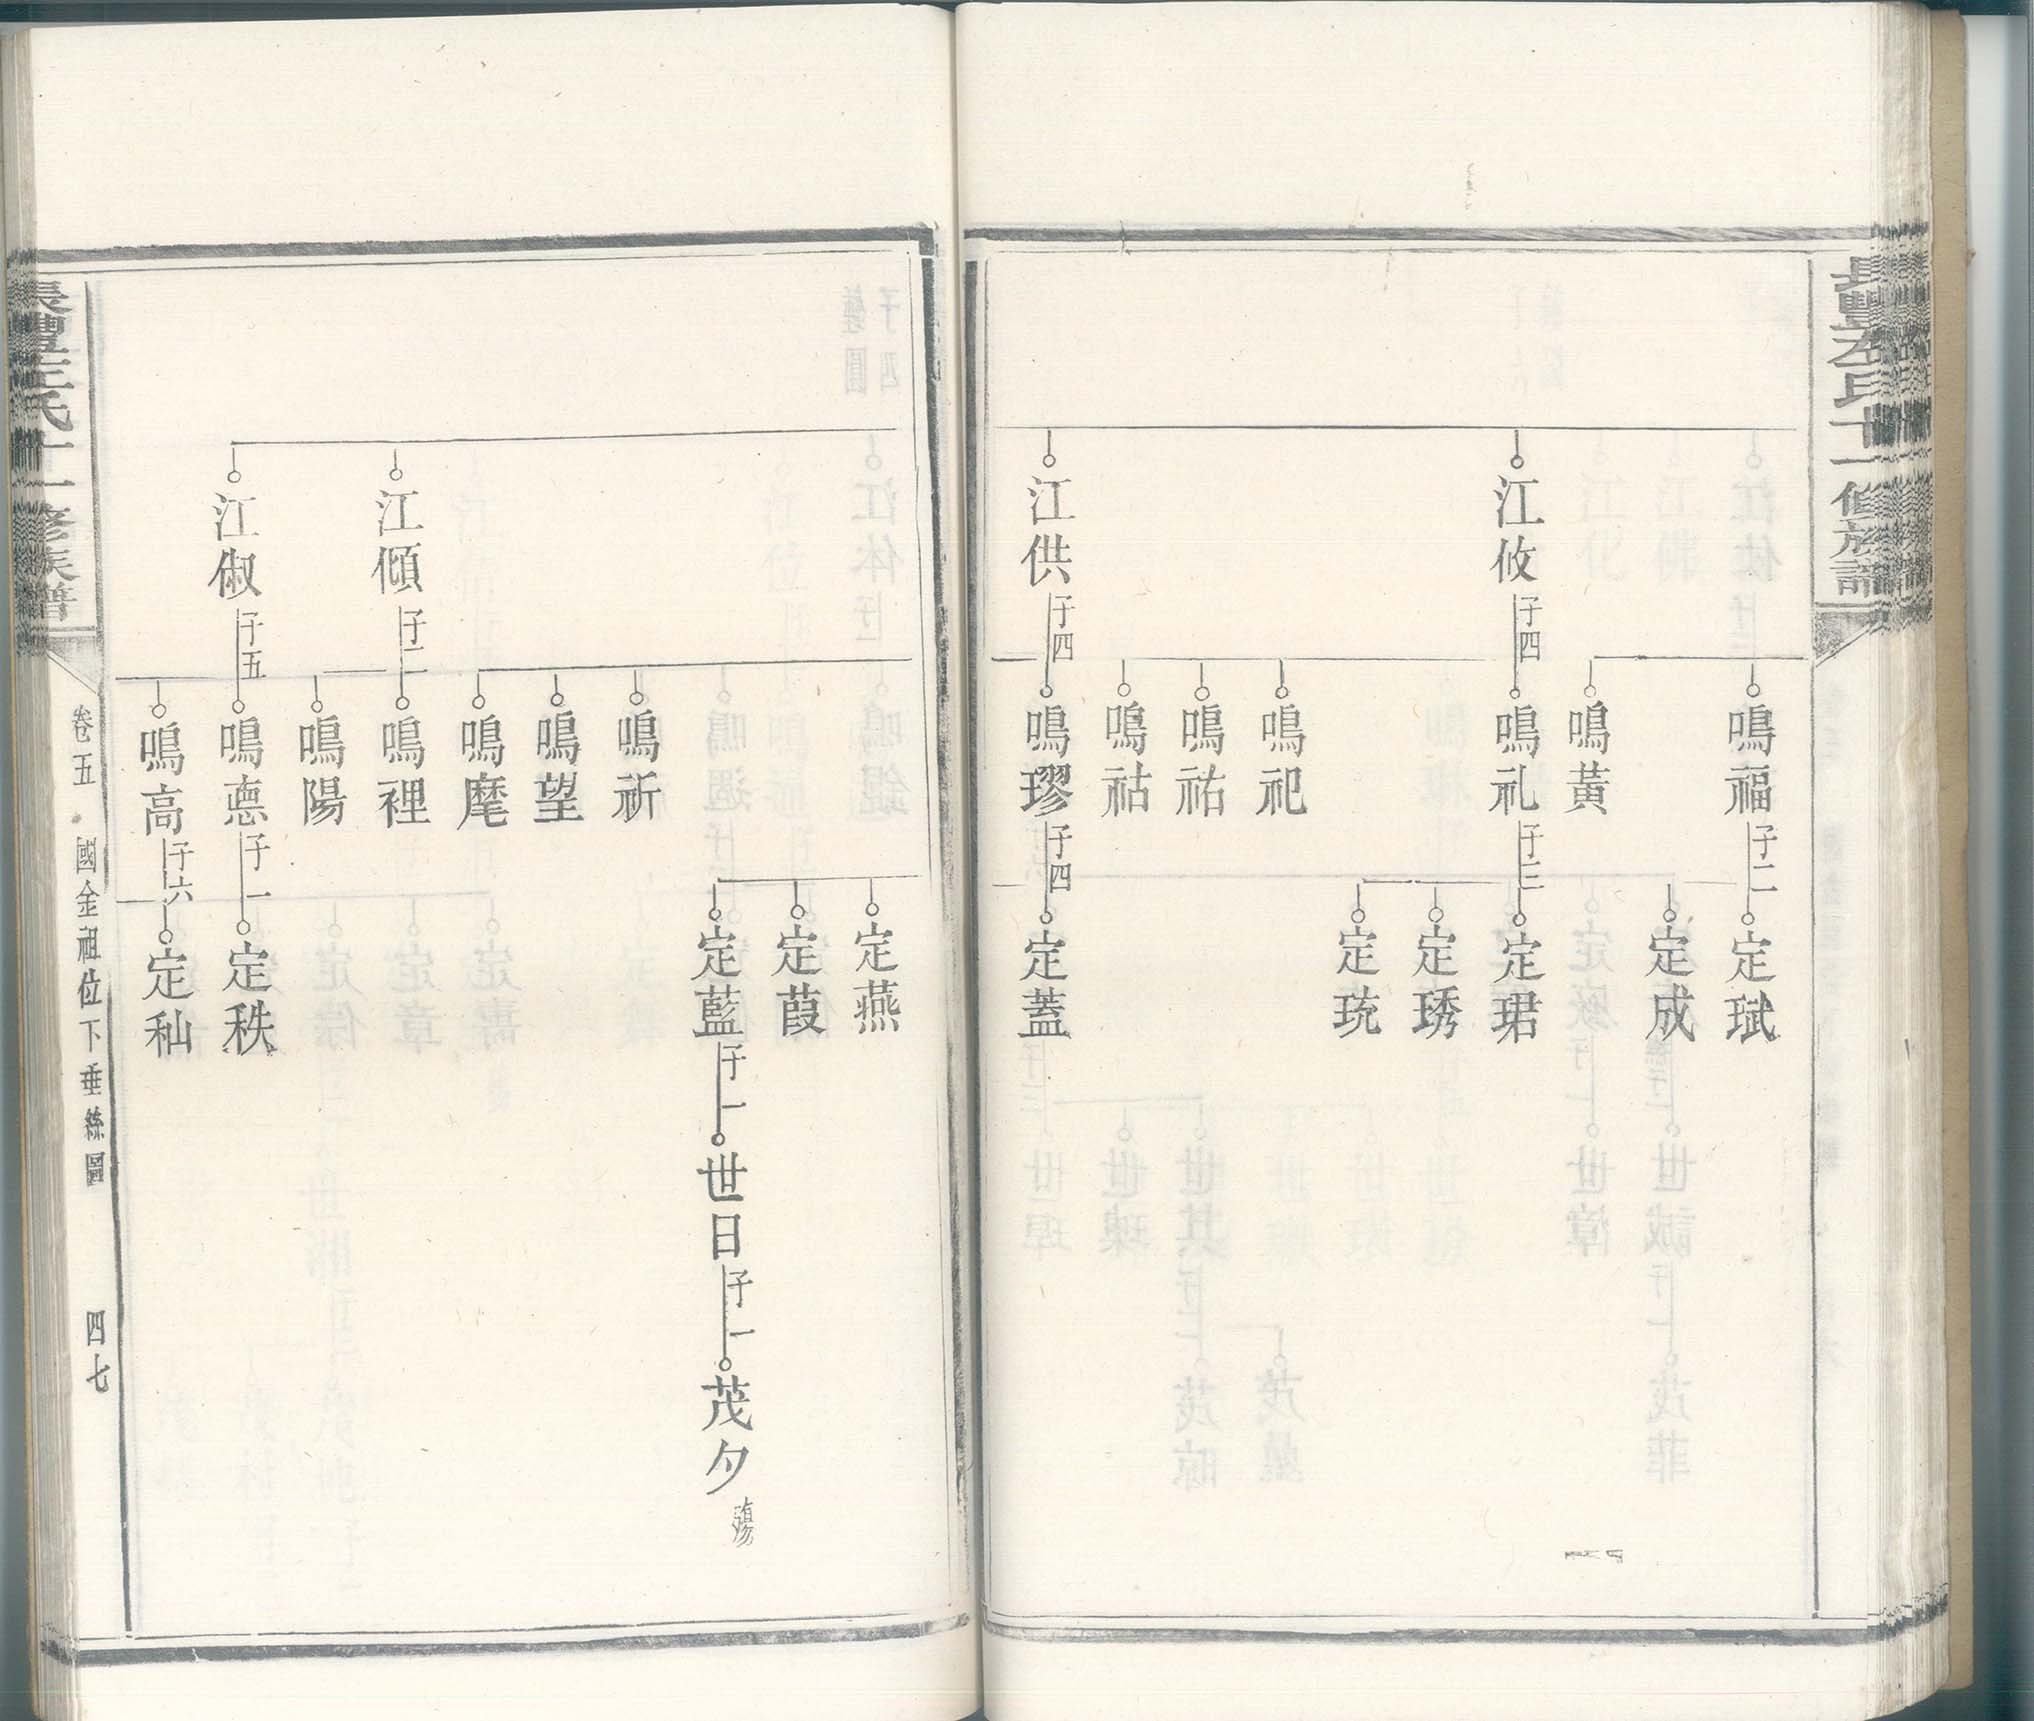 長豐左氏十一修族譜
鳴福
子二
定珷
定成
鳴黃
江攸
子四
鳴礼
子三
定珺
定琇
定珫
鳴祀
鳴祐
鳴祜
江供
子四
鳴璆
子四
定蓋
定燕
定葭
定藍
子一
世日
子一
茂夕
殤
鳴祈
鳴望
鳴麾
江傾
子二
鳴裡
鳴陽
江俶
子五
鳴悳
子一
定秩
鳴高
子六
定秈
長豐左氏十一修族譜
卷五
國金祖位下垂絲圖
四七